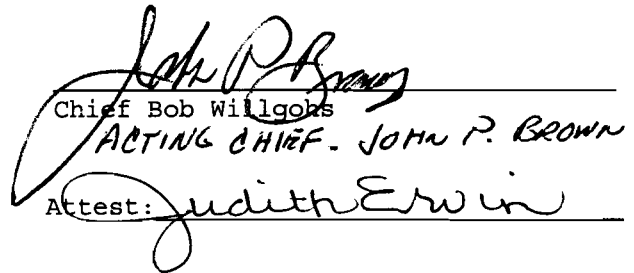 John P. Brown
Chief Bob Willgohs
ACTING CHIEF. JOHN P. BROWN
Attest: Judith Ervin